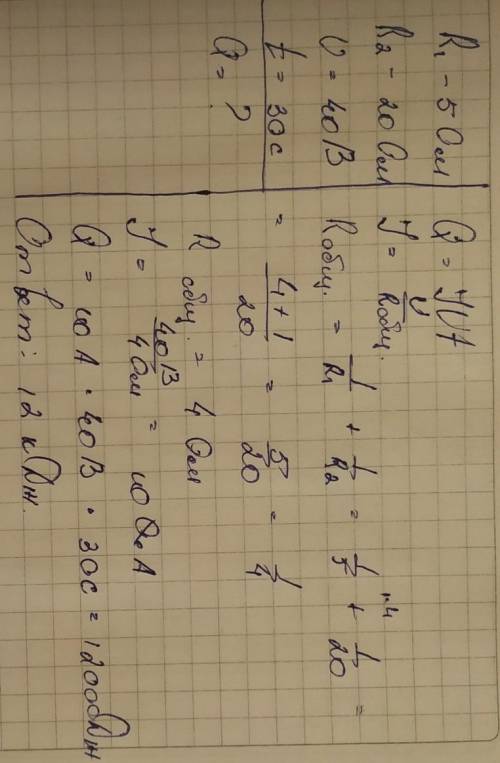 R₁ - 5 Ом
R₂ - 20 Ом
U = 40 В
t = 30 с
Q = ?
Q = IUt
I = U/Rобщ.
Rобщ. = 1/R₁ + 1/R₂ = 1/5 ·4 + 1/20 =
= (4+1)/20 = 5/20 = 1/4
R общ. = 4 Ом
I = 40В/4Ом = 10 А
Q = 10А · 40В · 30с = 12000Дж
Ответ: 12 кДж.